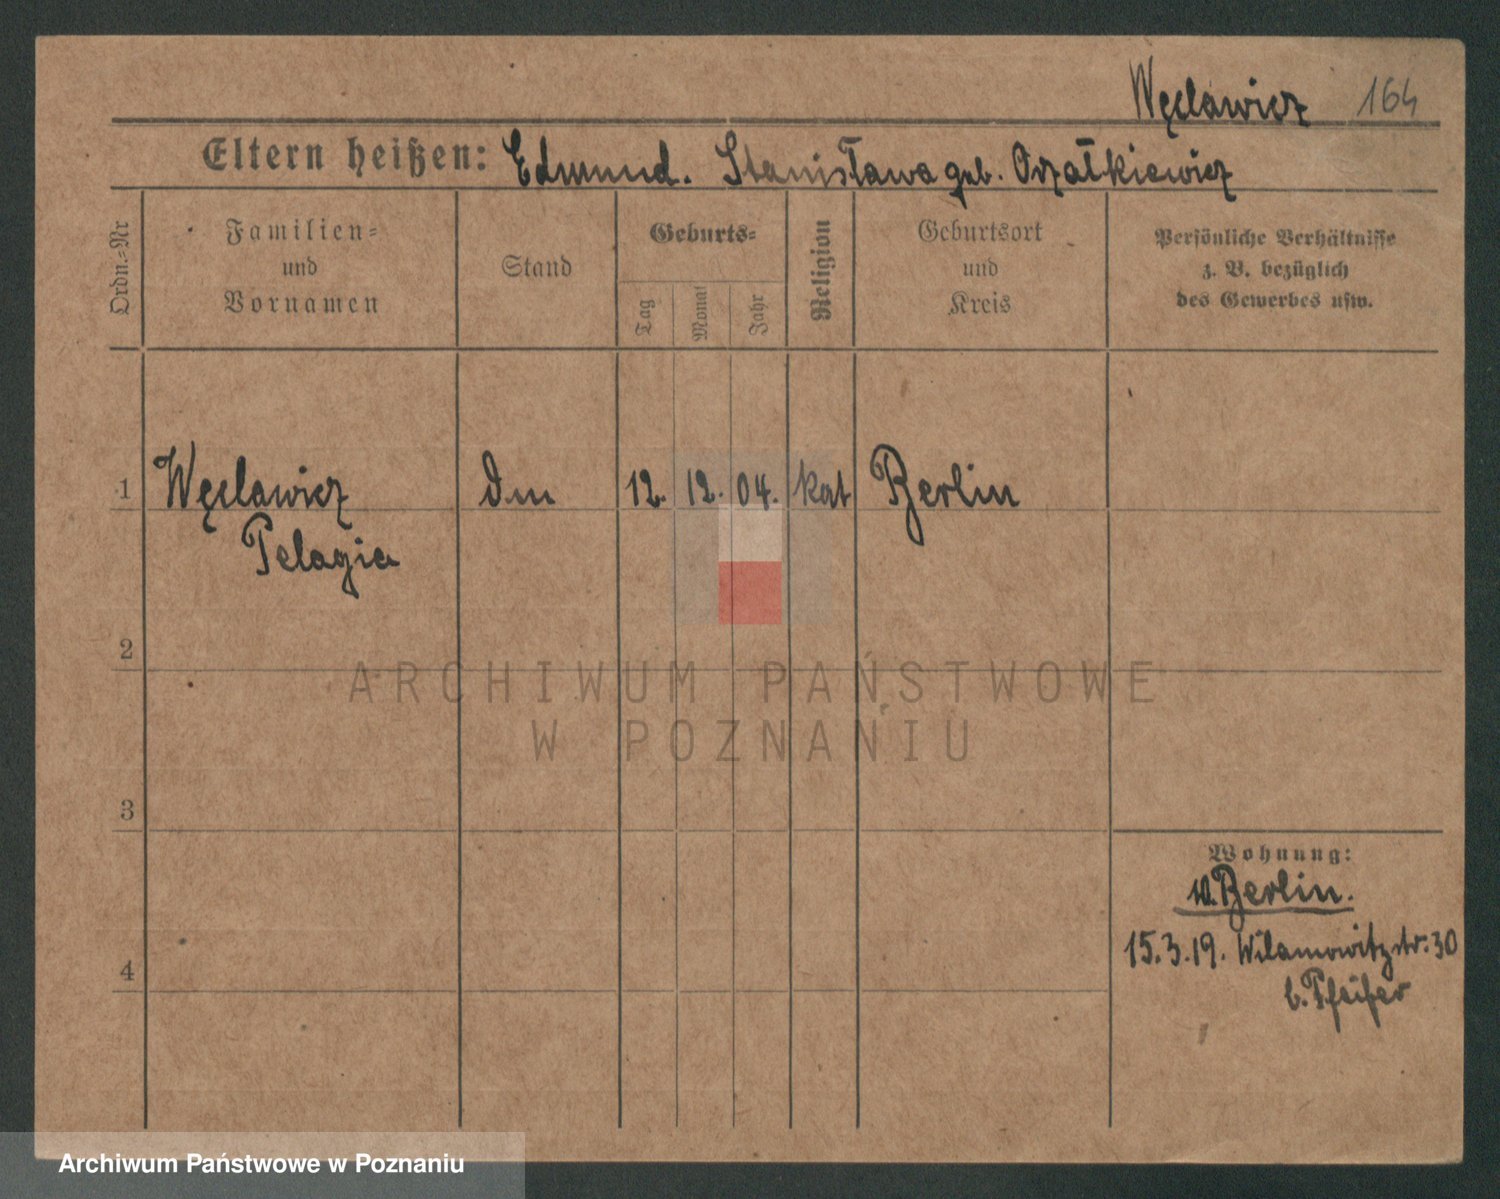 Węclawicz 164
Eltern heißen: Edmund. Stanisława geb. Orzałkiewicz
Ordn.=Nr
Familien=
und
Vornamen
Stand
Geburts=
Tag
Monat
Jahr
Religion
Geburtsort
und
Kreis
Persönliche Verhältnisse
z. B. bezüglich
des Gewerbes usw.
1 Węclawicz 12. 12. 04. kat Berlin
Pelagia
2
3
4
Wohnung:
Berlin.
15.3.19. Wilamowitzstr. 30
b. Pfeifer
ARCHIWUM PAŃSTWOWE
W POZNANIU
Archiwum Państwowe w Poznaniu